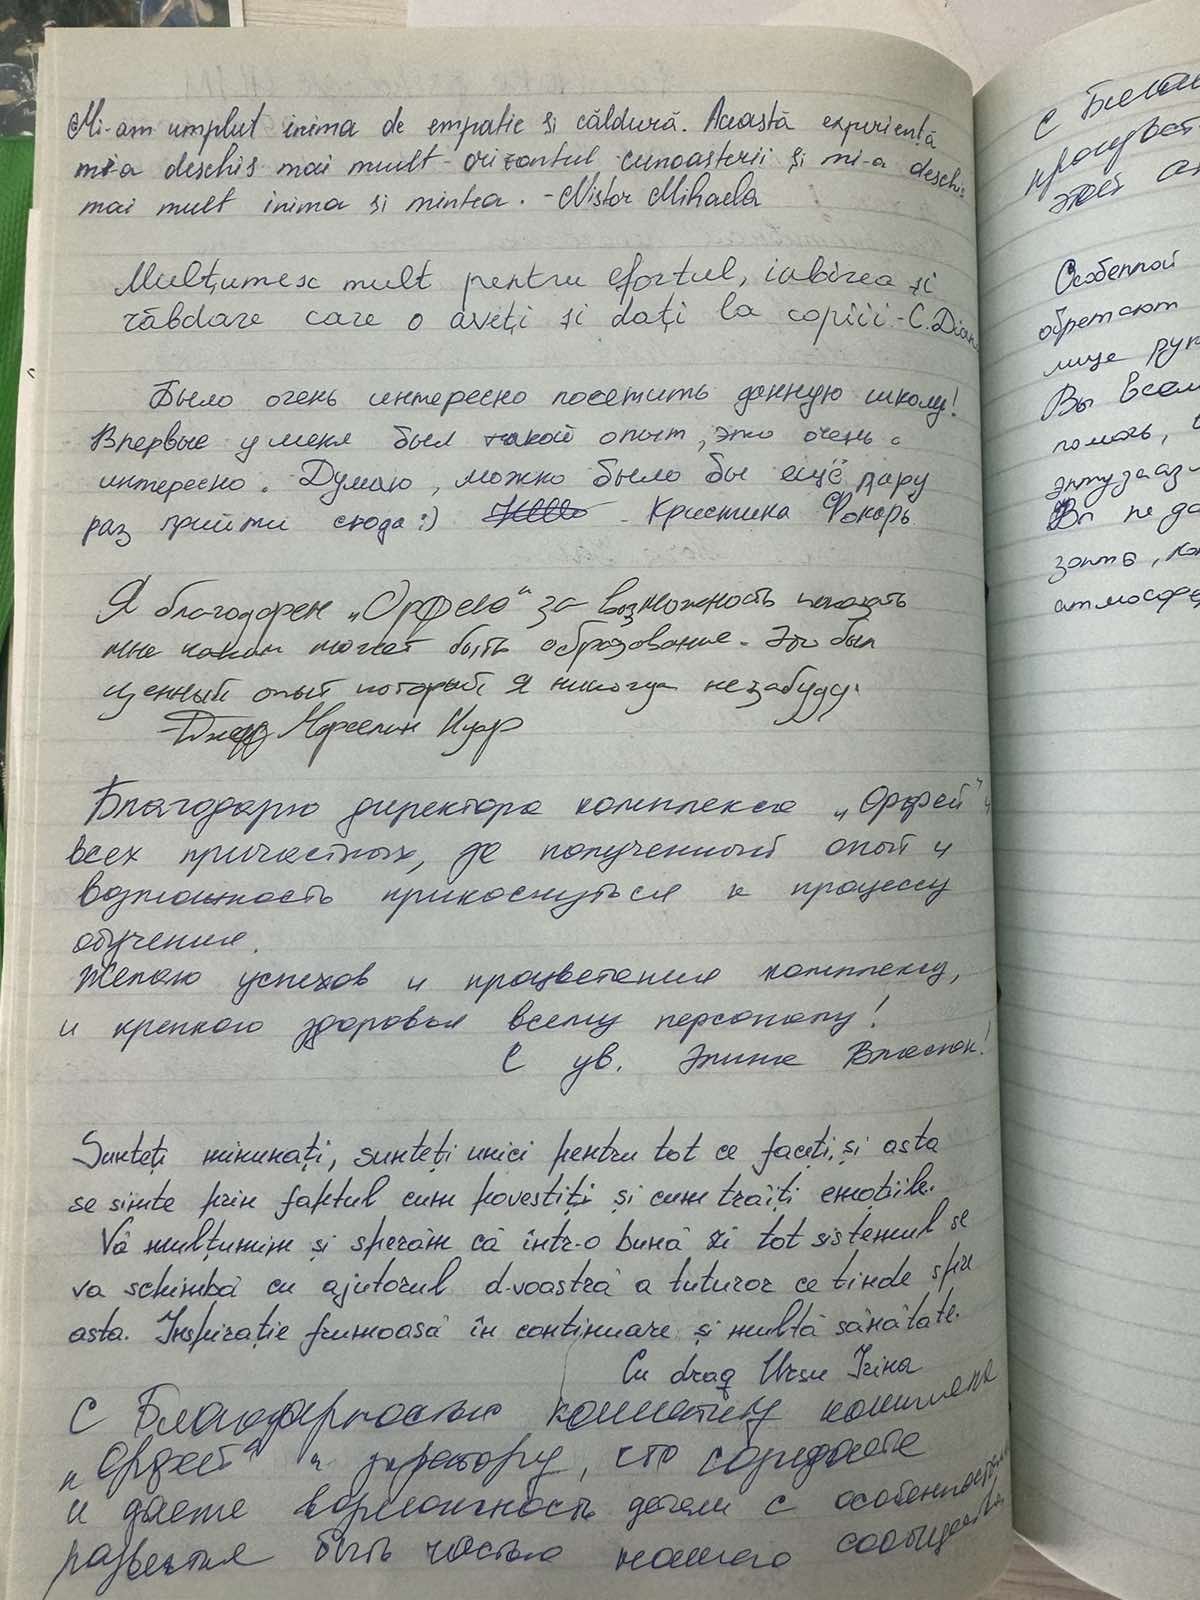 Mi-am umplut inima de empatie și căldură. Această experiență
mi-a deschis mai mult orizontul cunoașterii și mi-a deschis
mai mult inima și mintea. -Nistor Mihaela
Mulțumesc mult pentru efortul, iubirea și
răbdare care o aveți și dați la copiii - C. Diana
Было очень интересно посетить данную школу!
Впервые у меня был такой опыт, это очень
интересно. Думаю, можно было бы ещё пару
раз прийти сюда :) - Кристина Фокарь
Я благодарен „Орфею“ за возможность показать
мне каким может быть образование. Это был
ценный опыт который я никогда не забуду.
Марселин
Благодарю директора комплекса „Орфей“ и
всех причастных, за полученный опыт и
возможность прикоснуться к процессу
обучения.
Желаю успехов и процветания комплексу,
и крепкого здоровья всему персоналу!
С ув.
Sunteți minunați, sunteți unici pentru tot ce faceți, și asta
se simte prin faptul cum povestiți și cum trăiți emoțiile.
Vă mulțumim și sperăm că într-o bună zi tot sistemul se
va schimba cu ajutorul d-voastră a tuturor ce tinde spre
asta. Inspirație frumoasă în continuare și multă sănătate.
Cu drag Ursu Irina
С Благодарностью коллективу комплекса
„Орфей“ и директору, что создаете
и даете возможность детям с особенностями
развития быть частью нашего сообщества
Особенной
обретают
лице
Вы всем
помочь,
Вы не